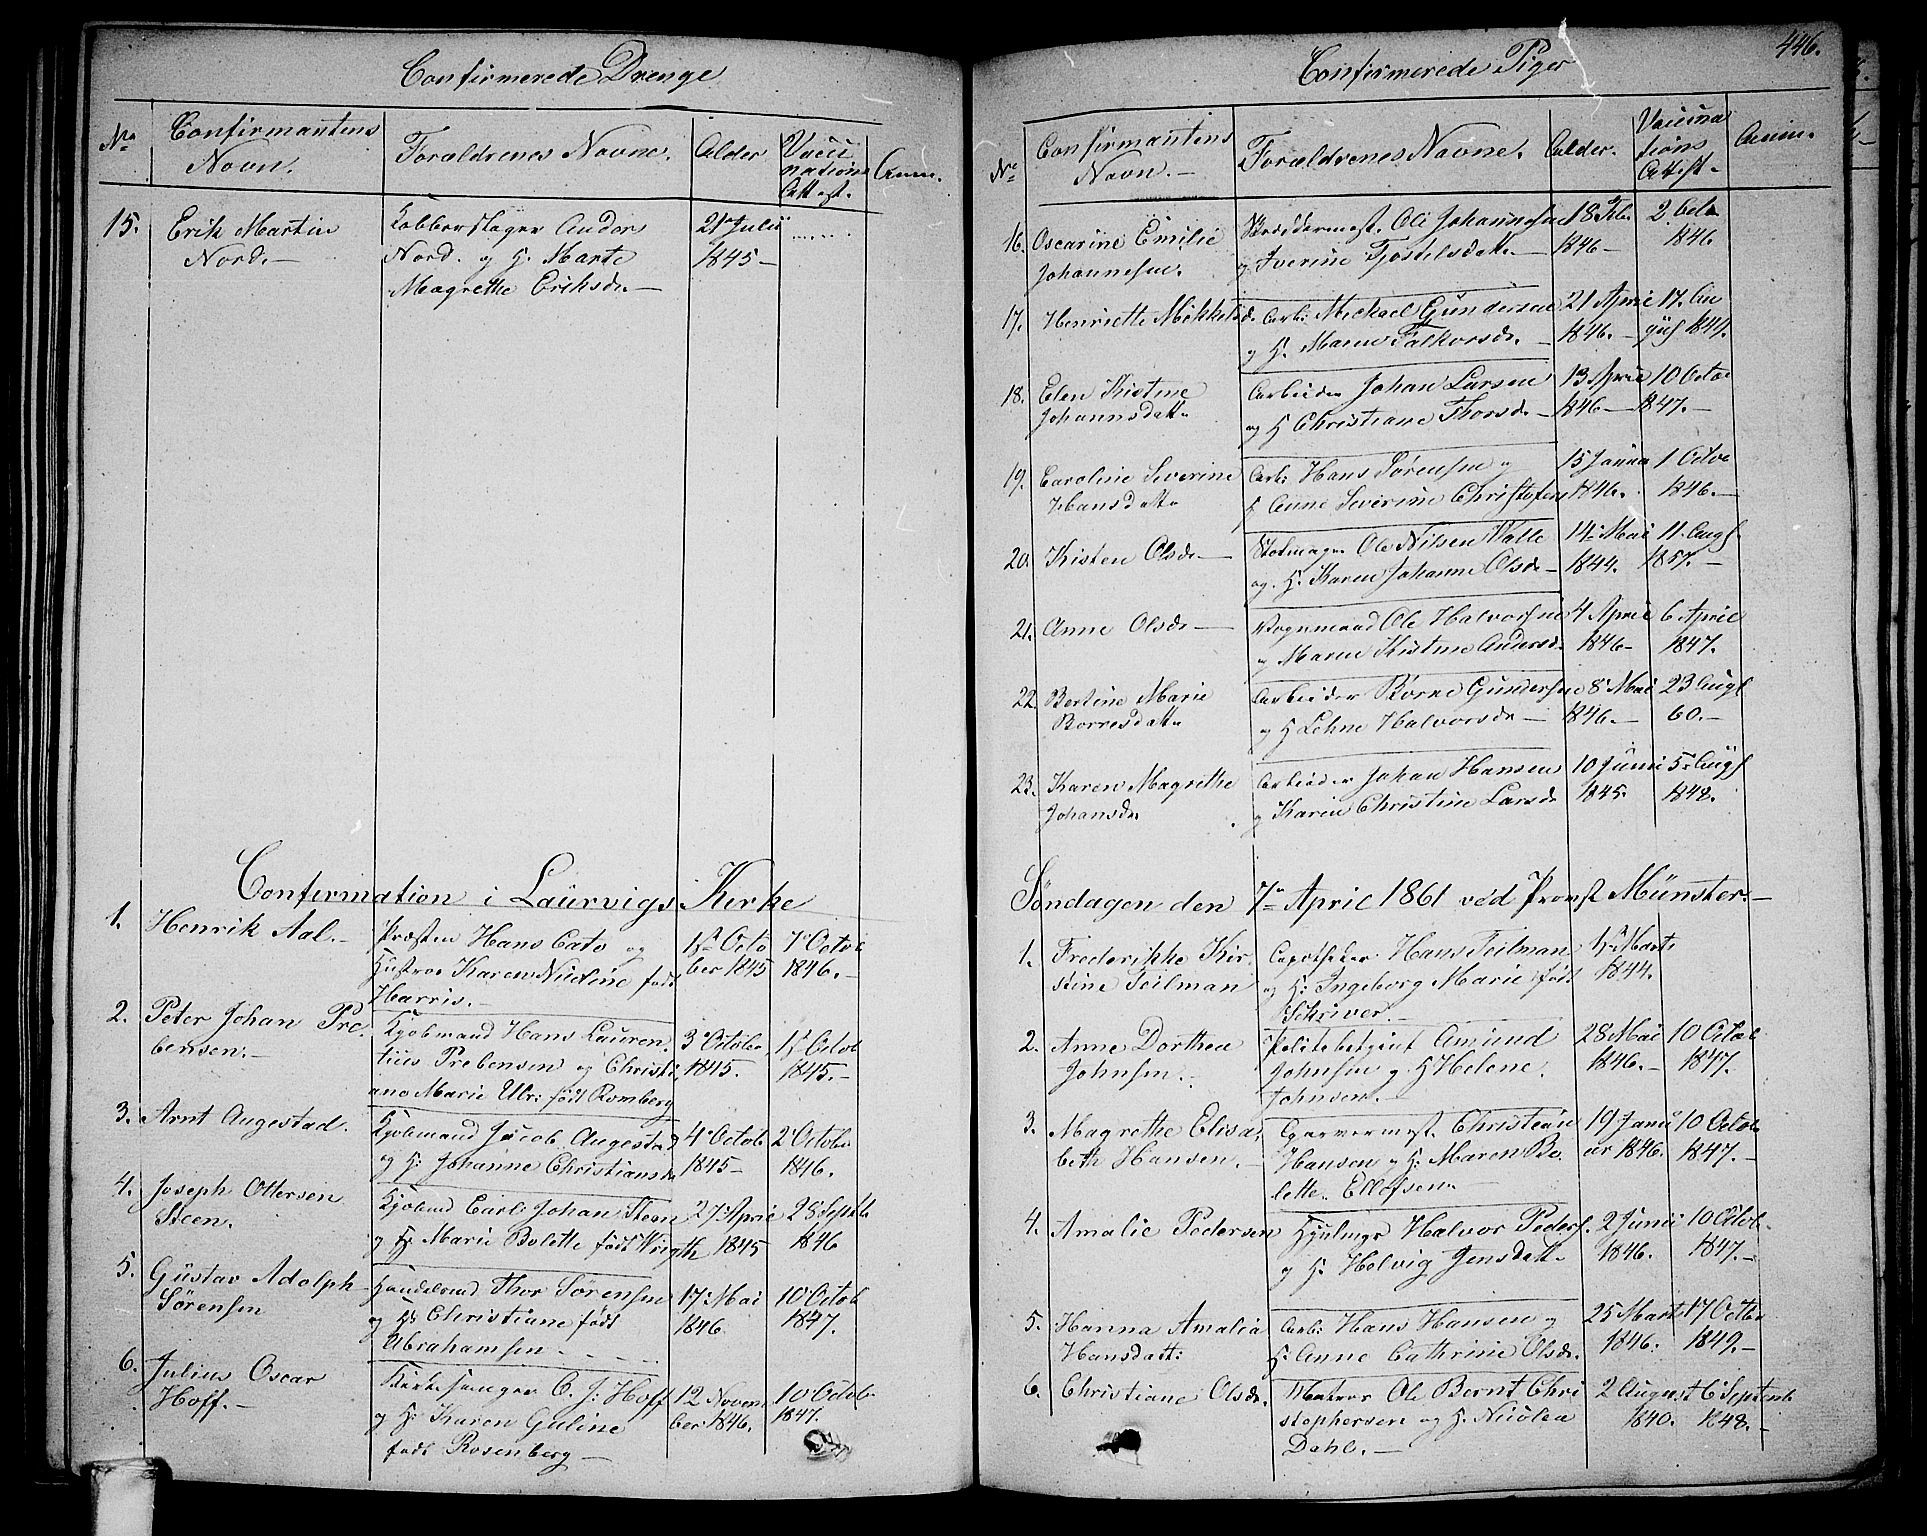 Confirmerede Drenge
No
Confirmantens
Navn.
Forældrenes Navne.
Alder
Vacci
nations
Attest.
Anm.
15. Erik Martin
Nord.—
Kobberslager Andor
Nord. og H. Marte
Magrethe Eriksdr.—
21 Julii
1845—
Confirmation i Laurvigs Kirke
1. Henrik Aal.—
Præsten Hans Cato og
Hustroe Karen Nicoline født
Harris.—
1st Octo
ber 1845
7 Octob
1846.—
2. Peter Johan Pre
bensen.—
Kjøbmand Hans Lauren
tius Prebensen og Christi
ane Marie Ulr: født Romberg
3 Octob.
1845.
1st Octob
1845.—
3. Arnt Augestad.
Kjøbmand Jacob Augestad
og H: Johanne Christiansdr
4 Octob
1845—
2 Octob
1846.
4. Joseph Ottersen
Steen.
Kjøbmd Carl Johan Steen
og H: Marie Bolette født Wrigth
27 April
1845
28 Septb
1846
5. Gustav Adolph
Sørensen
Handelsmd Thor Sørensen
og H: Christiane født
Abrahamsen
17 Mai
1846
10 Octob
1847.
6. Julius Oscar
Hoff.—
Kirkesanger C. J: Hoff
og H: Karen Guline
født Rosenberg—
12 Novem
ber 1846.
10 Octob
1847.
Confirmerede Piger
446.
No
Confirmantens
Navn.—
Forældrenes Navne.
Alder.
Vaccina
tions
Attest.
Anm.
16. Oscarine Emilie
Johannesen.
Skræddermest. Ole Johannesen
og Iverine Tjostelsdatt.—
18 Feb.
1846—
2 Octo
1846
17. Henriette Mikkelsdr.
Arb: Mickael Gundersen
og H. Maren Falkorsdr.—
21 April
1846.—
17. Au
gust 1847.
18. Elen Kistine
Johannsdatt.
Arbeider Johan Larsen
og H Christiane Thorsdr—
13 April
1846—
10 Octo
1847.—
19. Caroline Severine
Hansdatt.
Arb: Hans Sørensen og
H Anne Severine Christofers
15 Janua
1846.
1 Octo
1846.—
20. Kisten Olsdr—
Ole Nilsen Valle
og. H. Karen Johanne Olsdr—
14 Mai
1844.
11 Augt.
1857.—
21. Anne Olsdr—
Vognmand Ole Halvorsen
og Maren Kistine Andersdr.
4 April
1846—
6 April
1847.
22. Bertine Marie
Borresdatt.
Arbeider Børre Gundersen
og H Lehne Halvorsdr—
8 Mai
1846.—
23 Augt
60.—
23. Karen Magrethe
Johansdr
Arbeider Johan Hansen
og Karen Christine Larsdr
10 Junii
1845.
5 Augt
1848.
Søndagen den 7de April 1861 ved Provst Münster.—
1. Frederikke Kir
stine Teilman
Apotheker Hans Teilman
og H: Ingeborg Marie født
Schriver.—
1st Marts
1844.
2. Anne Dorthea
Johnsen.
Politebetjent Amund
Johnsen og H Helene
Johnsen.—
28 Mai
1846.—
10 Octob
1847.
3. Magrethe Elisa,
beth Hansen.—
Garvermest. Christian
Hansen og H: Maren Bo
lette. Ellefsen—
19 Janu
ar 1846.
10 Octob
1847.—
4. Amalie Pedersen
Halvor Peders.
og H. Helvig Jensdatt.
2 Junii
1846.
10 Octob.
1847.—
5. Hanna Amalia
Hansdatt:
Arb: Hans Hansen og
H: Anne Cathrine Olsdr.
25 Marts
1846.
17 Octob
1849.—
6. Christiane Olsdr.
Matros Ole Bernt Chri
stophersen og H. Nicolea
Dahl.—
2 August
1840.
6 Septemb
1848.—